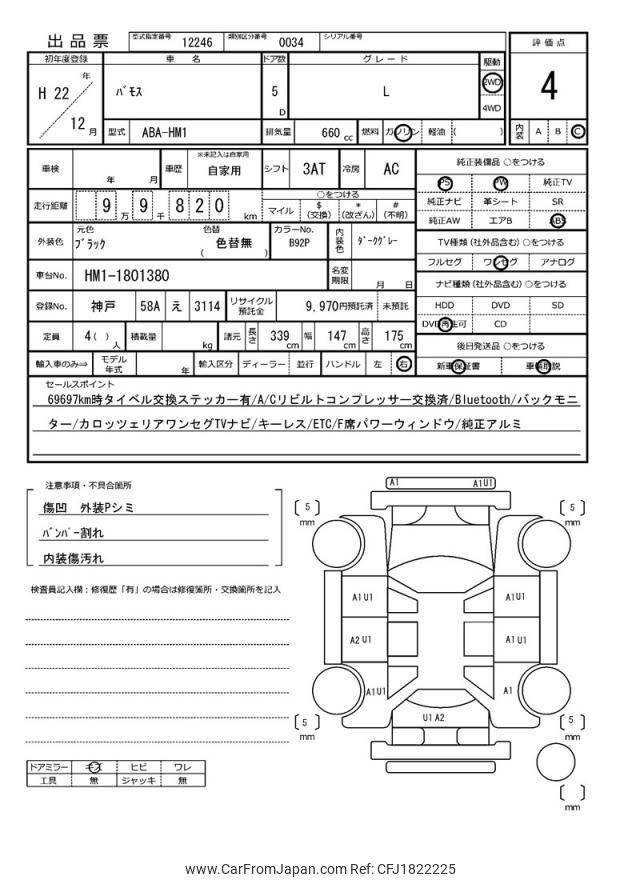 出品票 型式指定番号 12246 類別区分番号 0034 シリアル番号
初年度登録 車 名 ドア数 グレード 駆動 評価点
H 22 年 12 月 バモス 5 D L 2WD 4WD 4
型式 ABA-HM1 排気量 660 cc 燃料 ガソリン 軽油 ( ) 内装 A B C
車検 年 月 車歴 ※未記入は自家用 自家用 シフト 3AT 冷房 AC 純正装備品 ○をつける
PS PW 純正TV
走行距離 9 万 9 千 8 2 0 km ○をつける 純正ナビ 革シート SR
マイル $ (交換) * (改ざん) # (不明) 純正AW エアB ABS
外装色 元色 ブラック 色替 ( 色替無 ) カラーNo. B92P 内装色 ダークグレー TV種類 (社外品含む) ○をつける
フルセグ ワンセグ アナログ
車台No. HM1-1801380 名変期限 月 日 ナビ種類 (社外品含む) ○をつける
登録No. 神戸 58A え 3114 リサイクル預託金 9,970円預託済 未預託 HDD DVD SD
定員 4 ( ) 人 積載量 kg 諸元 長さ 339 cm 幅 147 cm 高さ 175 cm DVD再生可 CD
後日発送品 ○をつける
輸入車のみ⇒ モデル年式 年 輸入区分 ディーラー 並行 ハンドル 左 右 新車保証書 車輌取説
セールスポイント
69697km時タイベル交換ステッカー有/A/Cリビルトコンプレッサー交換済/Bluetooth/バックモニ
ター/カロッツェリアワンセグTVナビ/キーレス/ETC/F席パワーウィンドウ/純正アルミ
注意事項・不具合箇所
傷凹 外装Pシミ
バンパー割れ
内装傷汚れ
検査員記入欄：修復歴「有」の場合は修復箇所・交換箇所を記入
A1 A1U1
5 mm 5 mm
A1U1 A1U1
A2U1 A1U1
A1U1 A1
U1A2
5 mm 5 mm
mm
ドアミラー キズ ヒビ ワレ
工具 無 ジャッキ 無
www.CarFromJapan.com Ref: CFJ1822225